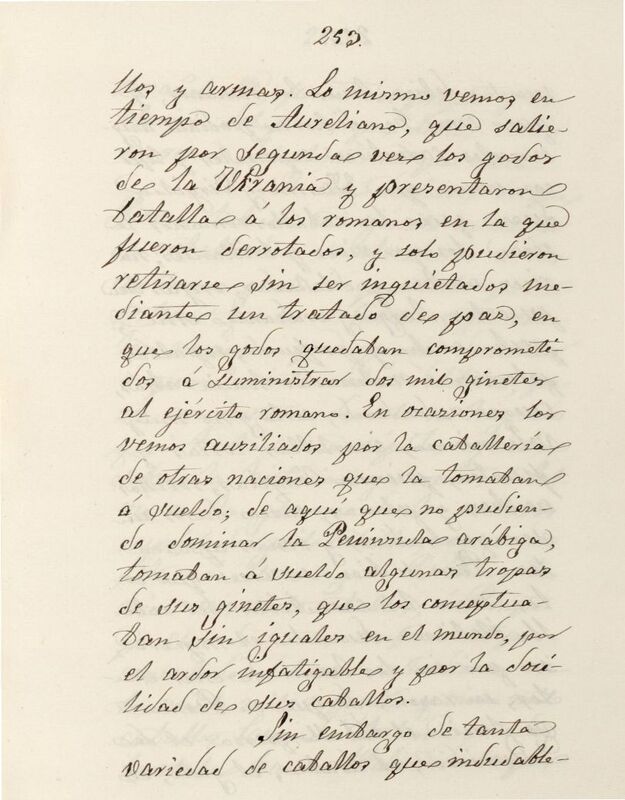 253.
llos y armas. Lo mismo vemos en
tiempo de Aureliano, que salie-
ron por segunda vez los godos
de la Ukrania y presentaron
batalla á los romanos en la que
fueron derrotados, y solo pudieron
retirarse sin ser inquietados me-
diante un tratado de paz, en
que los godos quedaban comprometi-
dos á suministrar dos mil ginetes
al ejército romano. En ocaziones los
vemos auxiliados por la caballería
de otras naciones que la tomaban
á sueldo; de aquí que no pudien-
do dominar la Península arábiga,
tomaban á sueldo algunas tropas
de sus ginetes, que los conceptua-
ban sin iguales en el mundo, por
el ardor infatigable y por la doci-
lidad de sus caballos.
Sin embargo de tanta
variedad de caballos que indudable-